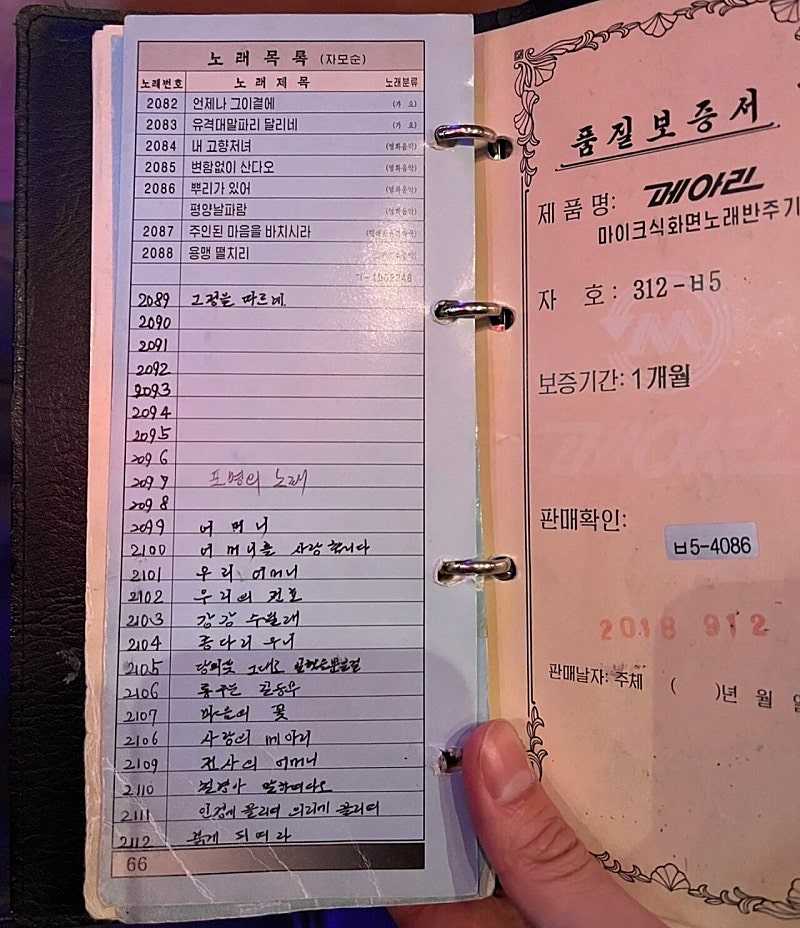 노래목록 (자모순)
노래번호 노래제목 노래분류
2082 언제나 그이곁에 (가요)
2083 유격대말파리 달리네 (가요)
2084 내 고향처녀 (영화음악)
2085 변함없이 산다오 (영화음악)
2086 뿌리가 있어 (영화음악)
평양날파람 (영화음악)
2087 주인된 마음을 바치시라
2088 용맹 떨치리
2089 그정을 따르네
2090
2091
2092
2093
2094
2095
2096
2097 포병의 노래
2098
2099 어머니
2100 어머니를 사랑합니다
2101 우리 어머니
2102 우리의
2103 강강수월래
2104 종다리 우니
2105 그대로
2106
2107 마음의 꽃
2106 사랑의 메아리
2109 전사의 어머니
2110 말하여다오
2111 인정에 끌리여 의리에 끌리여
2112 붉게 피여라
66
품질보증서
제품명: 메아리
마이크식화면노래반주기
자호: 312-ㅂ5
보증기간: 1개월
판매확인:
ㅂ5-4086
2018 9 12
판매날자: 주체 ( )년 월